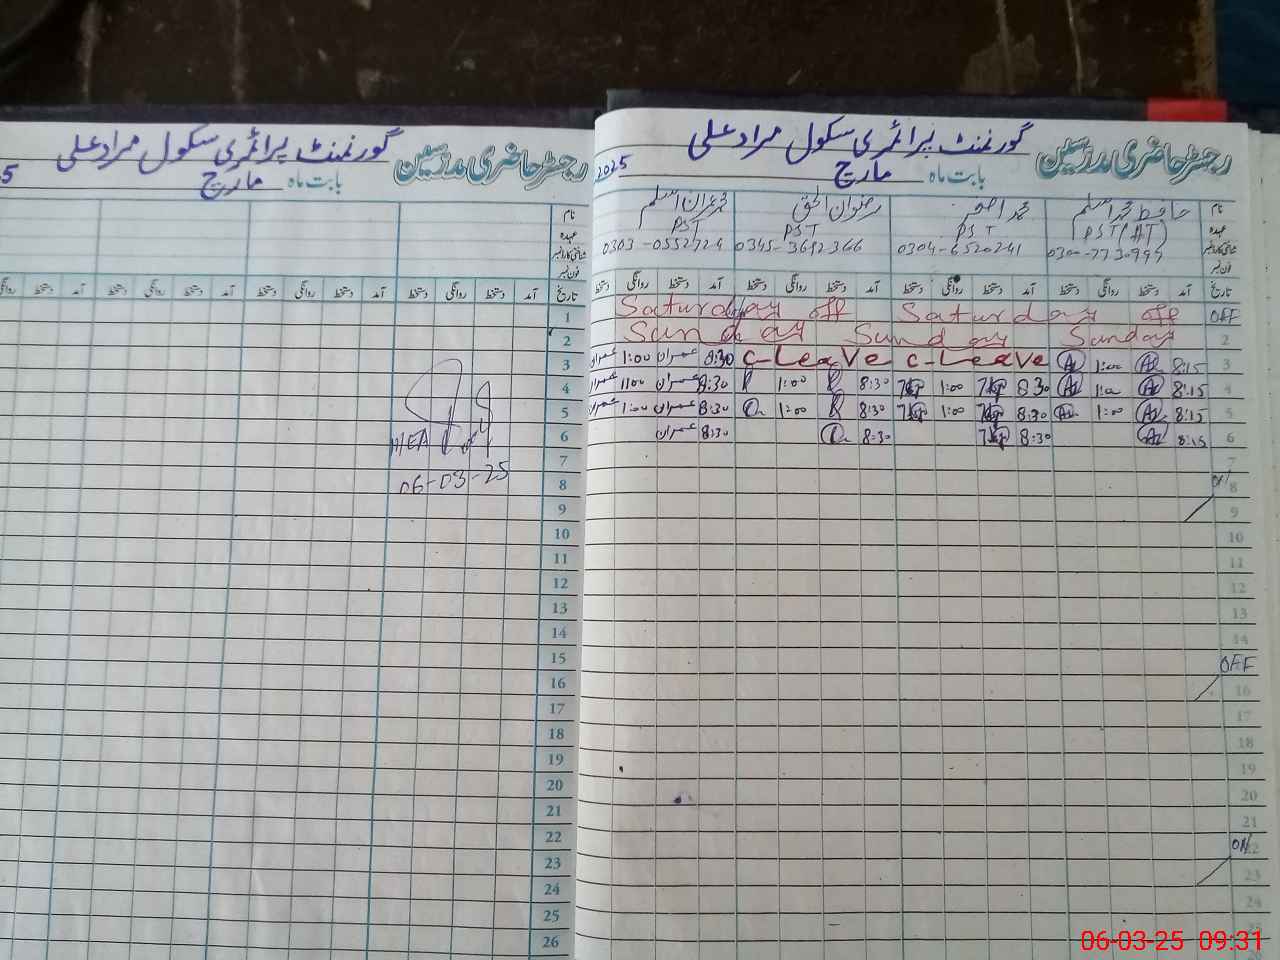 گورنمنٹ پرائمری سکول مراد علی
رجسٹر حاضری مدرسین
بابت ماہ مارچ
5
نام
عہدہ
شناختی کارڈ نمبر
فون نمبر
روانگی دستخط آمد دستخط روانگی دستخط آمد دستخط روانگی دستخط آمد دستخط روانگی دستخط آمد تاریخ
1
2
3
4
5
6
7
8
9
10
11
12
13
14
15
16
17
18
19
20
21
22
23
24
25
26
06-03-25
گورنمنٹ پرائمری سکول مراد علی
رجسٹر حاضری مدرسین
بابت ماہ مارچ 2025
نام حافظ محمد اسلم محمد اصغر رضوان الحق محمد عمران اسلم
عہدہ PST (HT) PST PST PST
شناختی کارڈ نمبر 0300-7730999 0304-6520241 0345-3692366 0303-0552724
فون نمبر
تاریخ آمد دستخط روانگی دستخط آمد دستخط روانگی دستخط آمد دستخط روانگی دستخط آمد دستخط روانگی دستخط
Saturday off Saturday off OFF
Sunday Sunday Sunday 2
عمران 1:00 عمران 8:30 C-Leave C-Leave 1:00 8:15 3
عمران 1:00 عمران 8:30 1:00 8:30 1:00 8:30 1:00 8:15 4
عمران 1:00 عمران 8:30 1:00 8:30 1:00 8:30 1:00 8:15 5
عمران 8:30 8:30 8:30 8:15 6
7
8
9
10
11
12
13
14
OFF
16
17
18
19
20
21
22
23
06-03-25 09:31